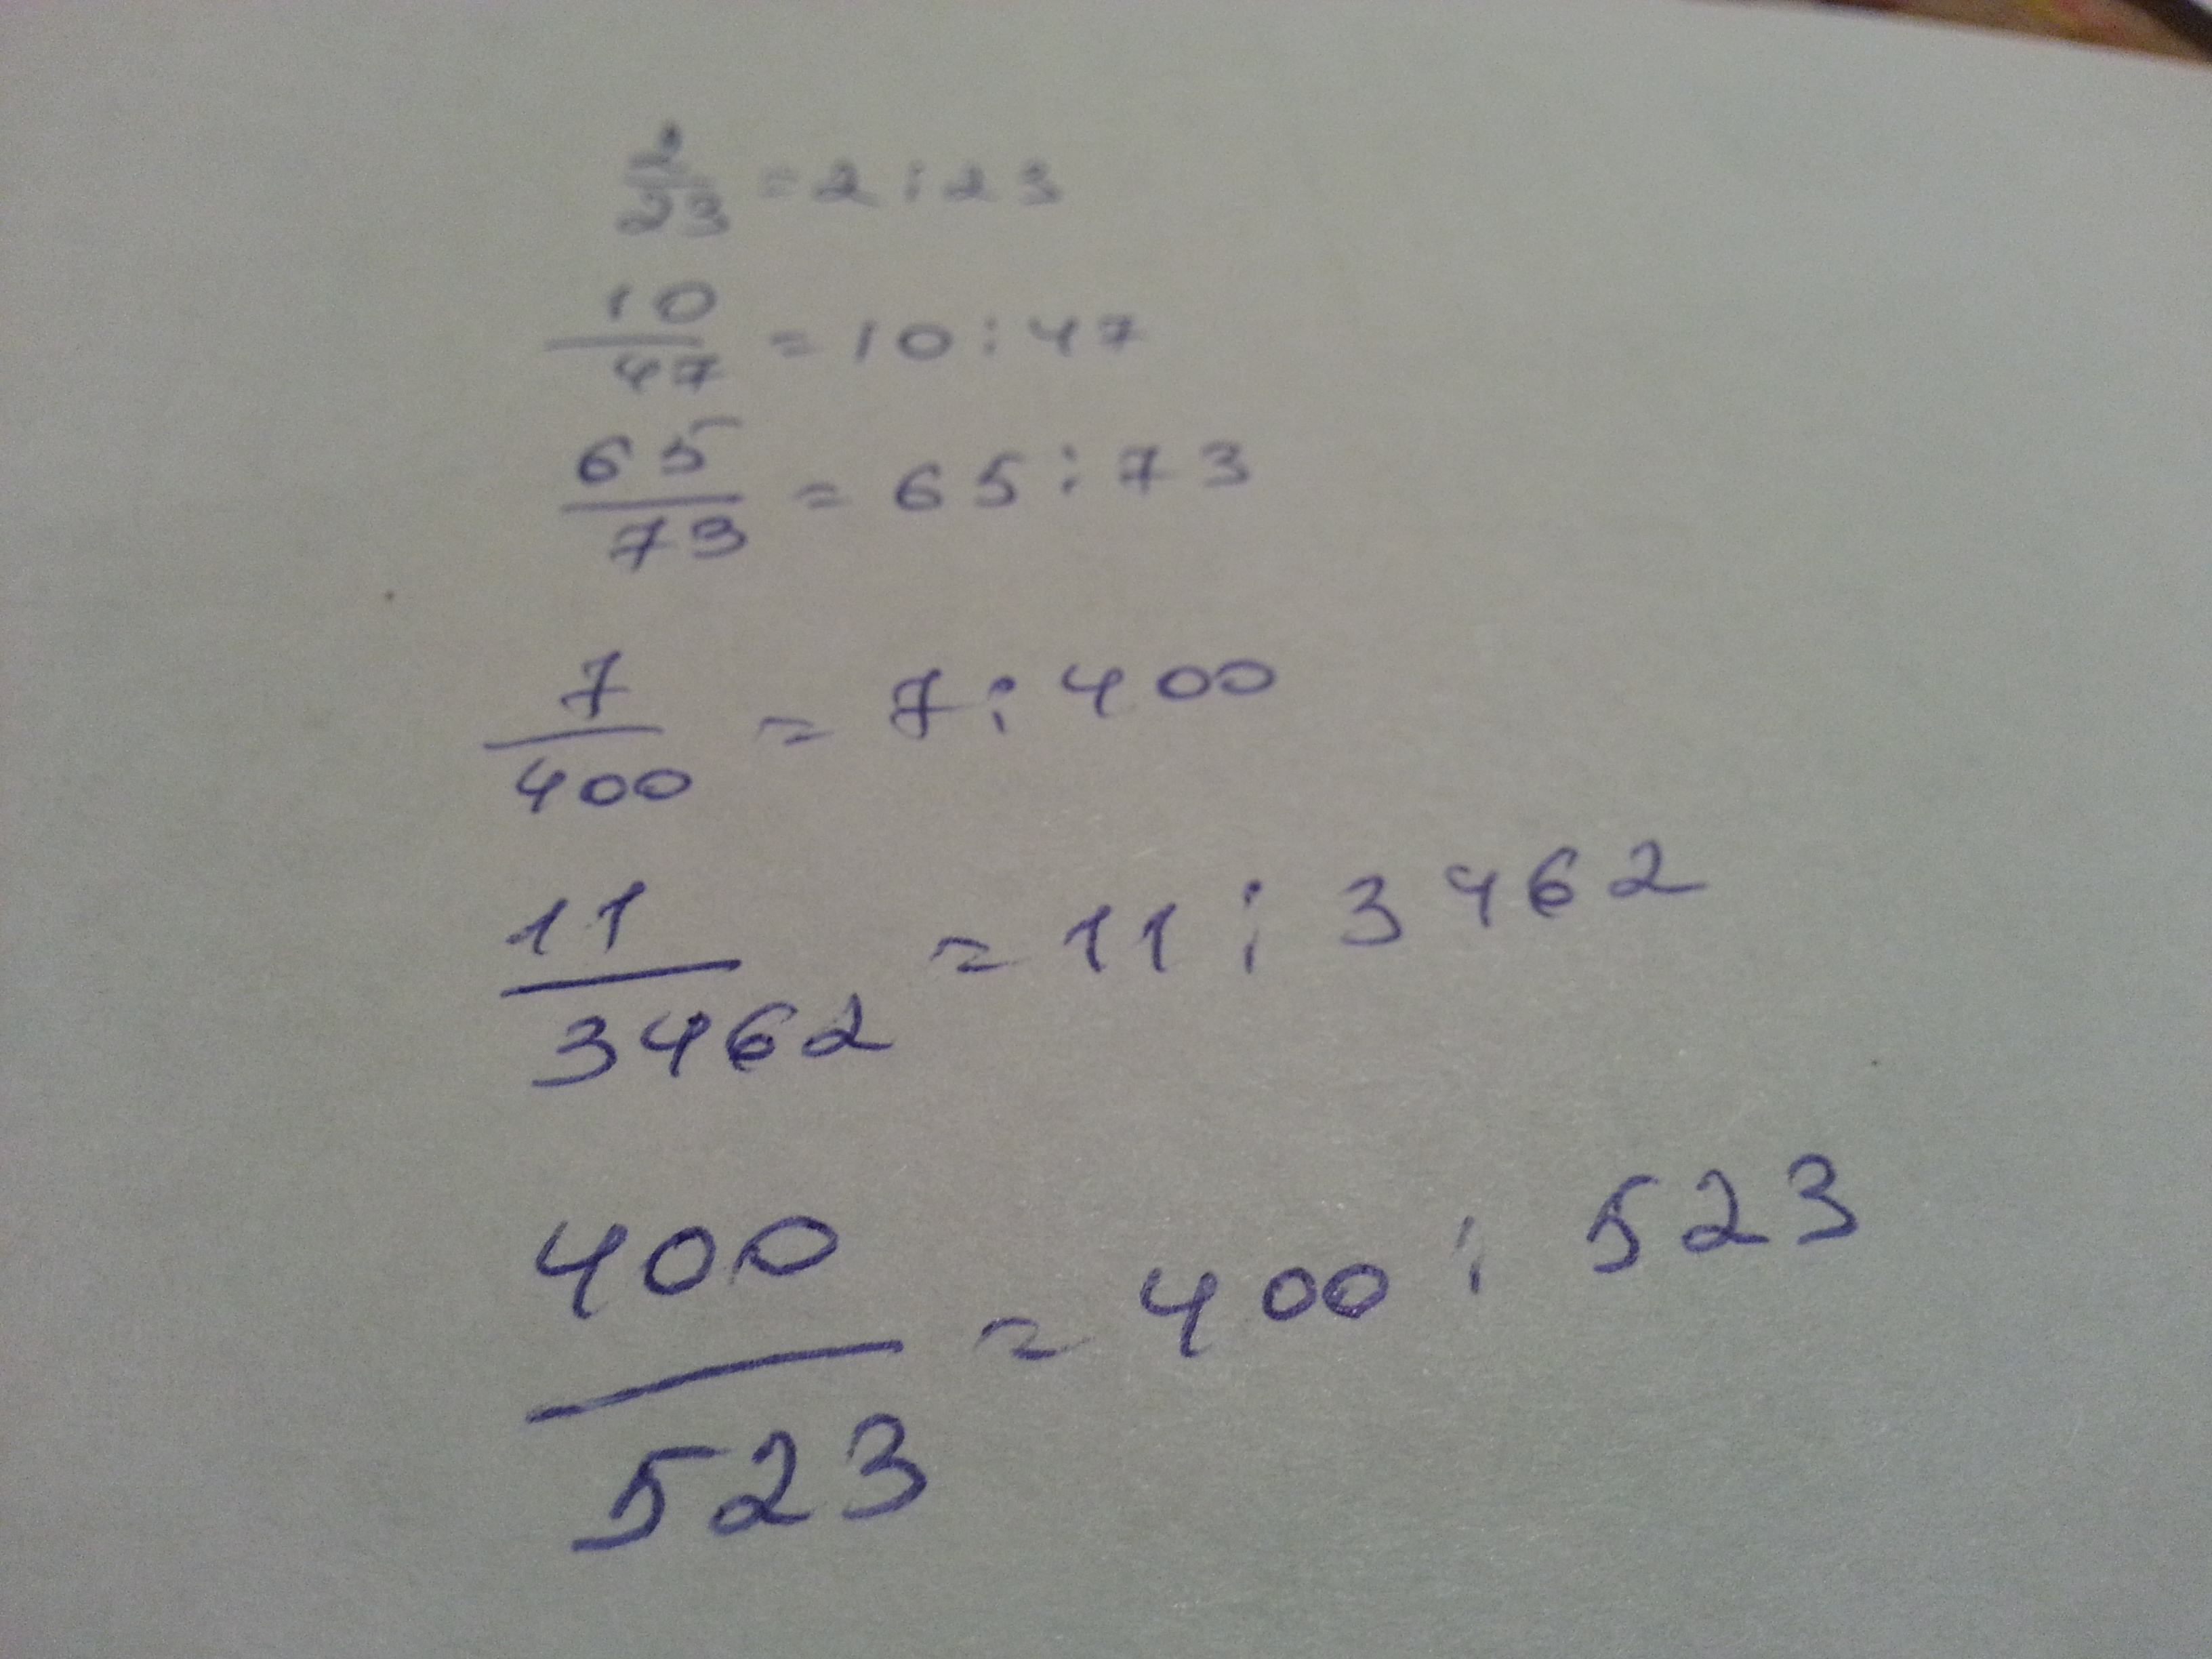 2/23 = 2 : 23
10/47 = 10 : 47
65/73 = 65 : 73
7/400 = 7 : 400
11/3462 = 11 : 3462
400/523 = 400 : 523